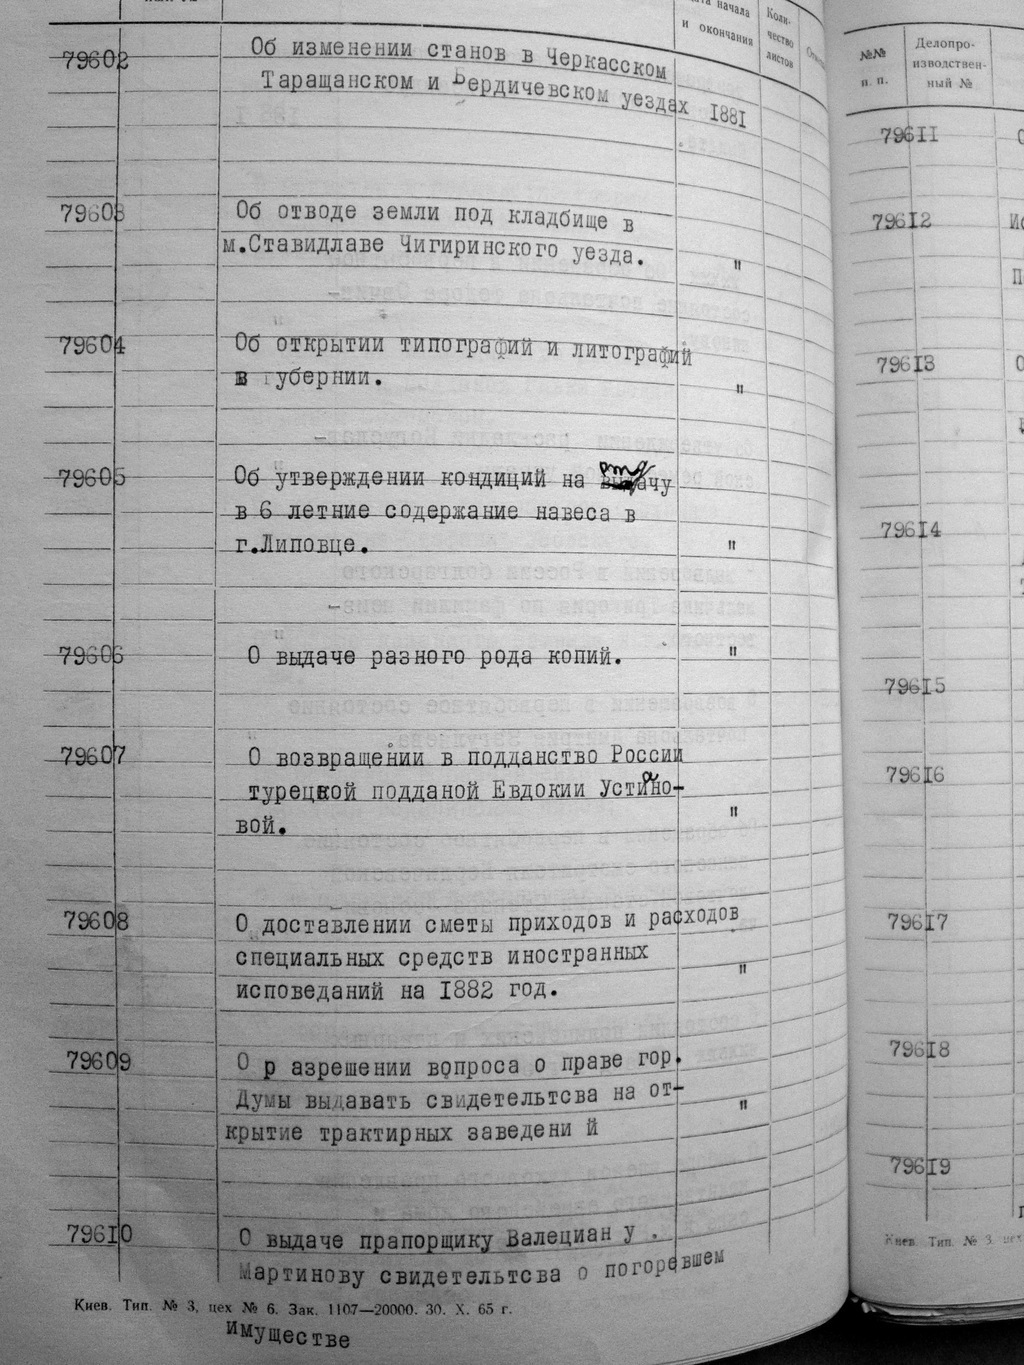 дата начала
и окончания
Коли-
чество
листов
79602
Об изменении станов в Черкасском
Таращанском и Бердичевском уездах 1881
79603
Об отводе земли под кладбище в
м.Ставидлаве Чигиринского уезда. "
79604
Об открытии типографий и литографий
в губернии. "
79605
Об утверждении кондиций на
в 6 летние содержание навеса в
г.Липовце. "
79606
О выдаче разного рода копий. "
79607
О возвращении в подданство России
турецкой подданой Евдокии
вой. "
79608
О доставлении сметы приходов и расходов
специальных средств иностранных
исповеданий на 1882 год. "
79609
О р азрешении вопроса о праве гор.
Думы выдавать свидетельтсва на от-
крытие трактирных заведени й "
79610
О выдаче прапорщику Валециан у .
Мартинову свидетельтсва о погоревшем
Киев. Тип. № 3, цех № 6. Зак. 1107—20000. 30. X. 65 г.
имуществе
№№
п. п.
Делопро-
изводствен-
ный №
79611
79612
79613
79614
79615
79616
79617
79618
79619
Киев. Тип. № 3. цех